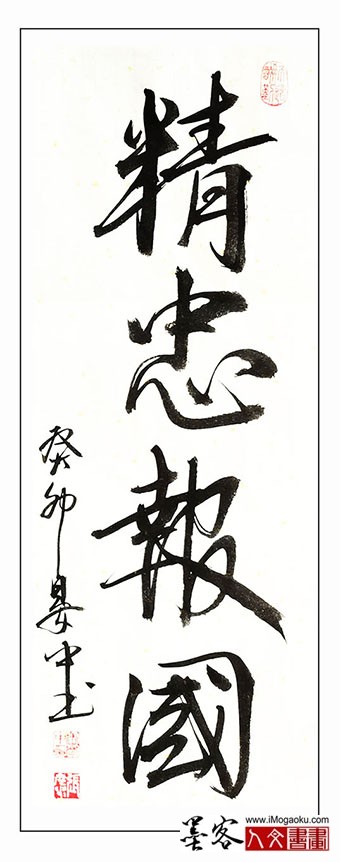 精忠報國
癸卯晏中书
www.iMogaoku.com
墨客
人文書畫